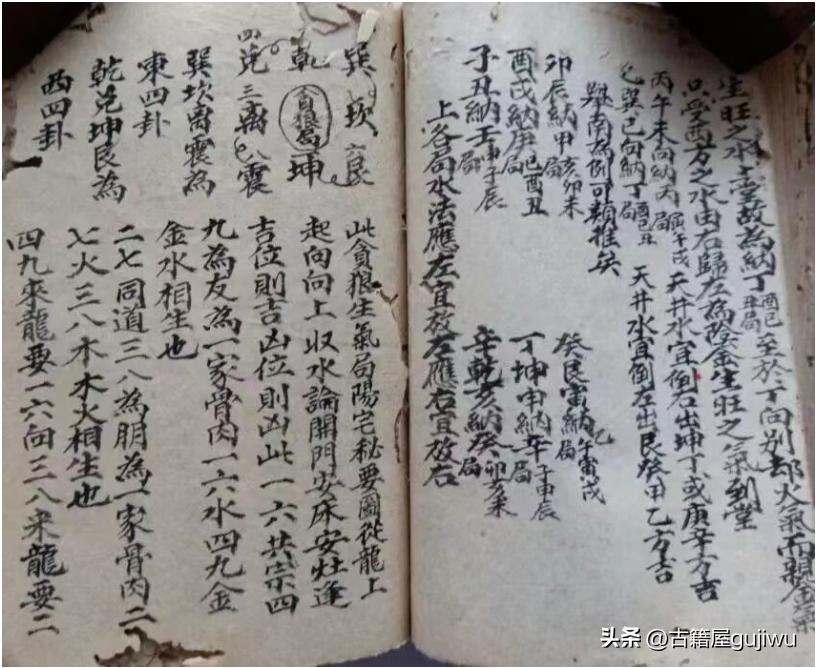 生旺之水上堂故為納丁酉巳丑局至於丁向別却火氣而親金氣
只受西方之水由右歸左為陰金生旺之氣到堂
丙午未向納丙局寅午戌天井水宜倒右出坤丁或庚辛方吉
巳巽巳向納丁局酉巳丑天井水宜倒左出艮癸甲乙方吉
舉南為例可類推矣
卯辰納甲局亥卯未 癸艮寅納乙局午寅戌
酉戌納庚局巳酉丑 丁坤申納辛局子申辰
子丑納壬局申子辰 辛乾亥納癸局卯亥未
上各局水法應左宜放左應右宜放右
巽 坎 艮
乾 貪狼局 坤
四兌 三離 八震
巽坎離震為
東四卦
乾兌坤艮為
西四卦
此貪狼生氣局陽宅秘要圖從龍上
起向向上收水論開門安床安灶逢
吉位則吉凶位則凶此一六共宗四
九為友為一家骨肉一六水四九金
金水相生也
二七同道三八為朋為一家骨肉二
七火三八木木火相生也
四九來龍要一六向三八来龍要二
头条 @古籍屋gujiwu